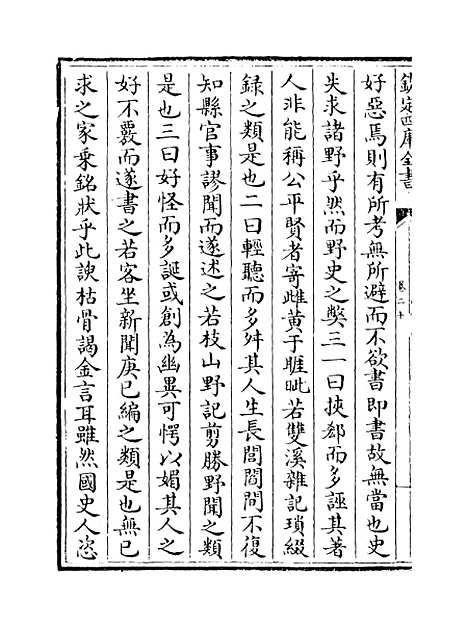 欽定四庫全書
卷二十
好惡焉則有所考無所避而不欲書即書故無當也史
失求諸野乎然而野史之獘三一曰挾郄而多誣其著
人非能稱公平賢者寄雌黄于睚眦若雙溪雜記瑣綴
録之類是也二曰輕聽而多舛其人生長閭閻間不復
知縣官事謬聞而遂述之若枝山野記剪勝野聞之類
是也三曰好怪而多誕或創為幽異可愕以媚其人之
好不覈而遂書之若客坐新聞庚已編之類是也無已
求之家乘銘狀乎此諛枯骨謁金言耳雖然國史人恣